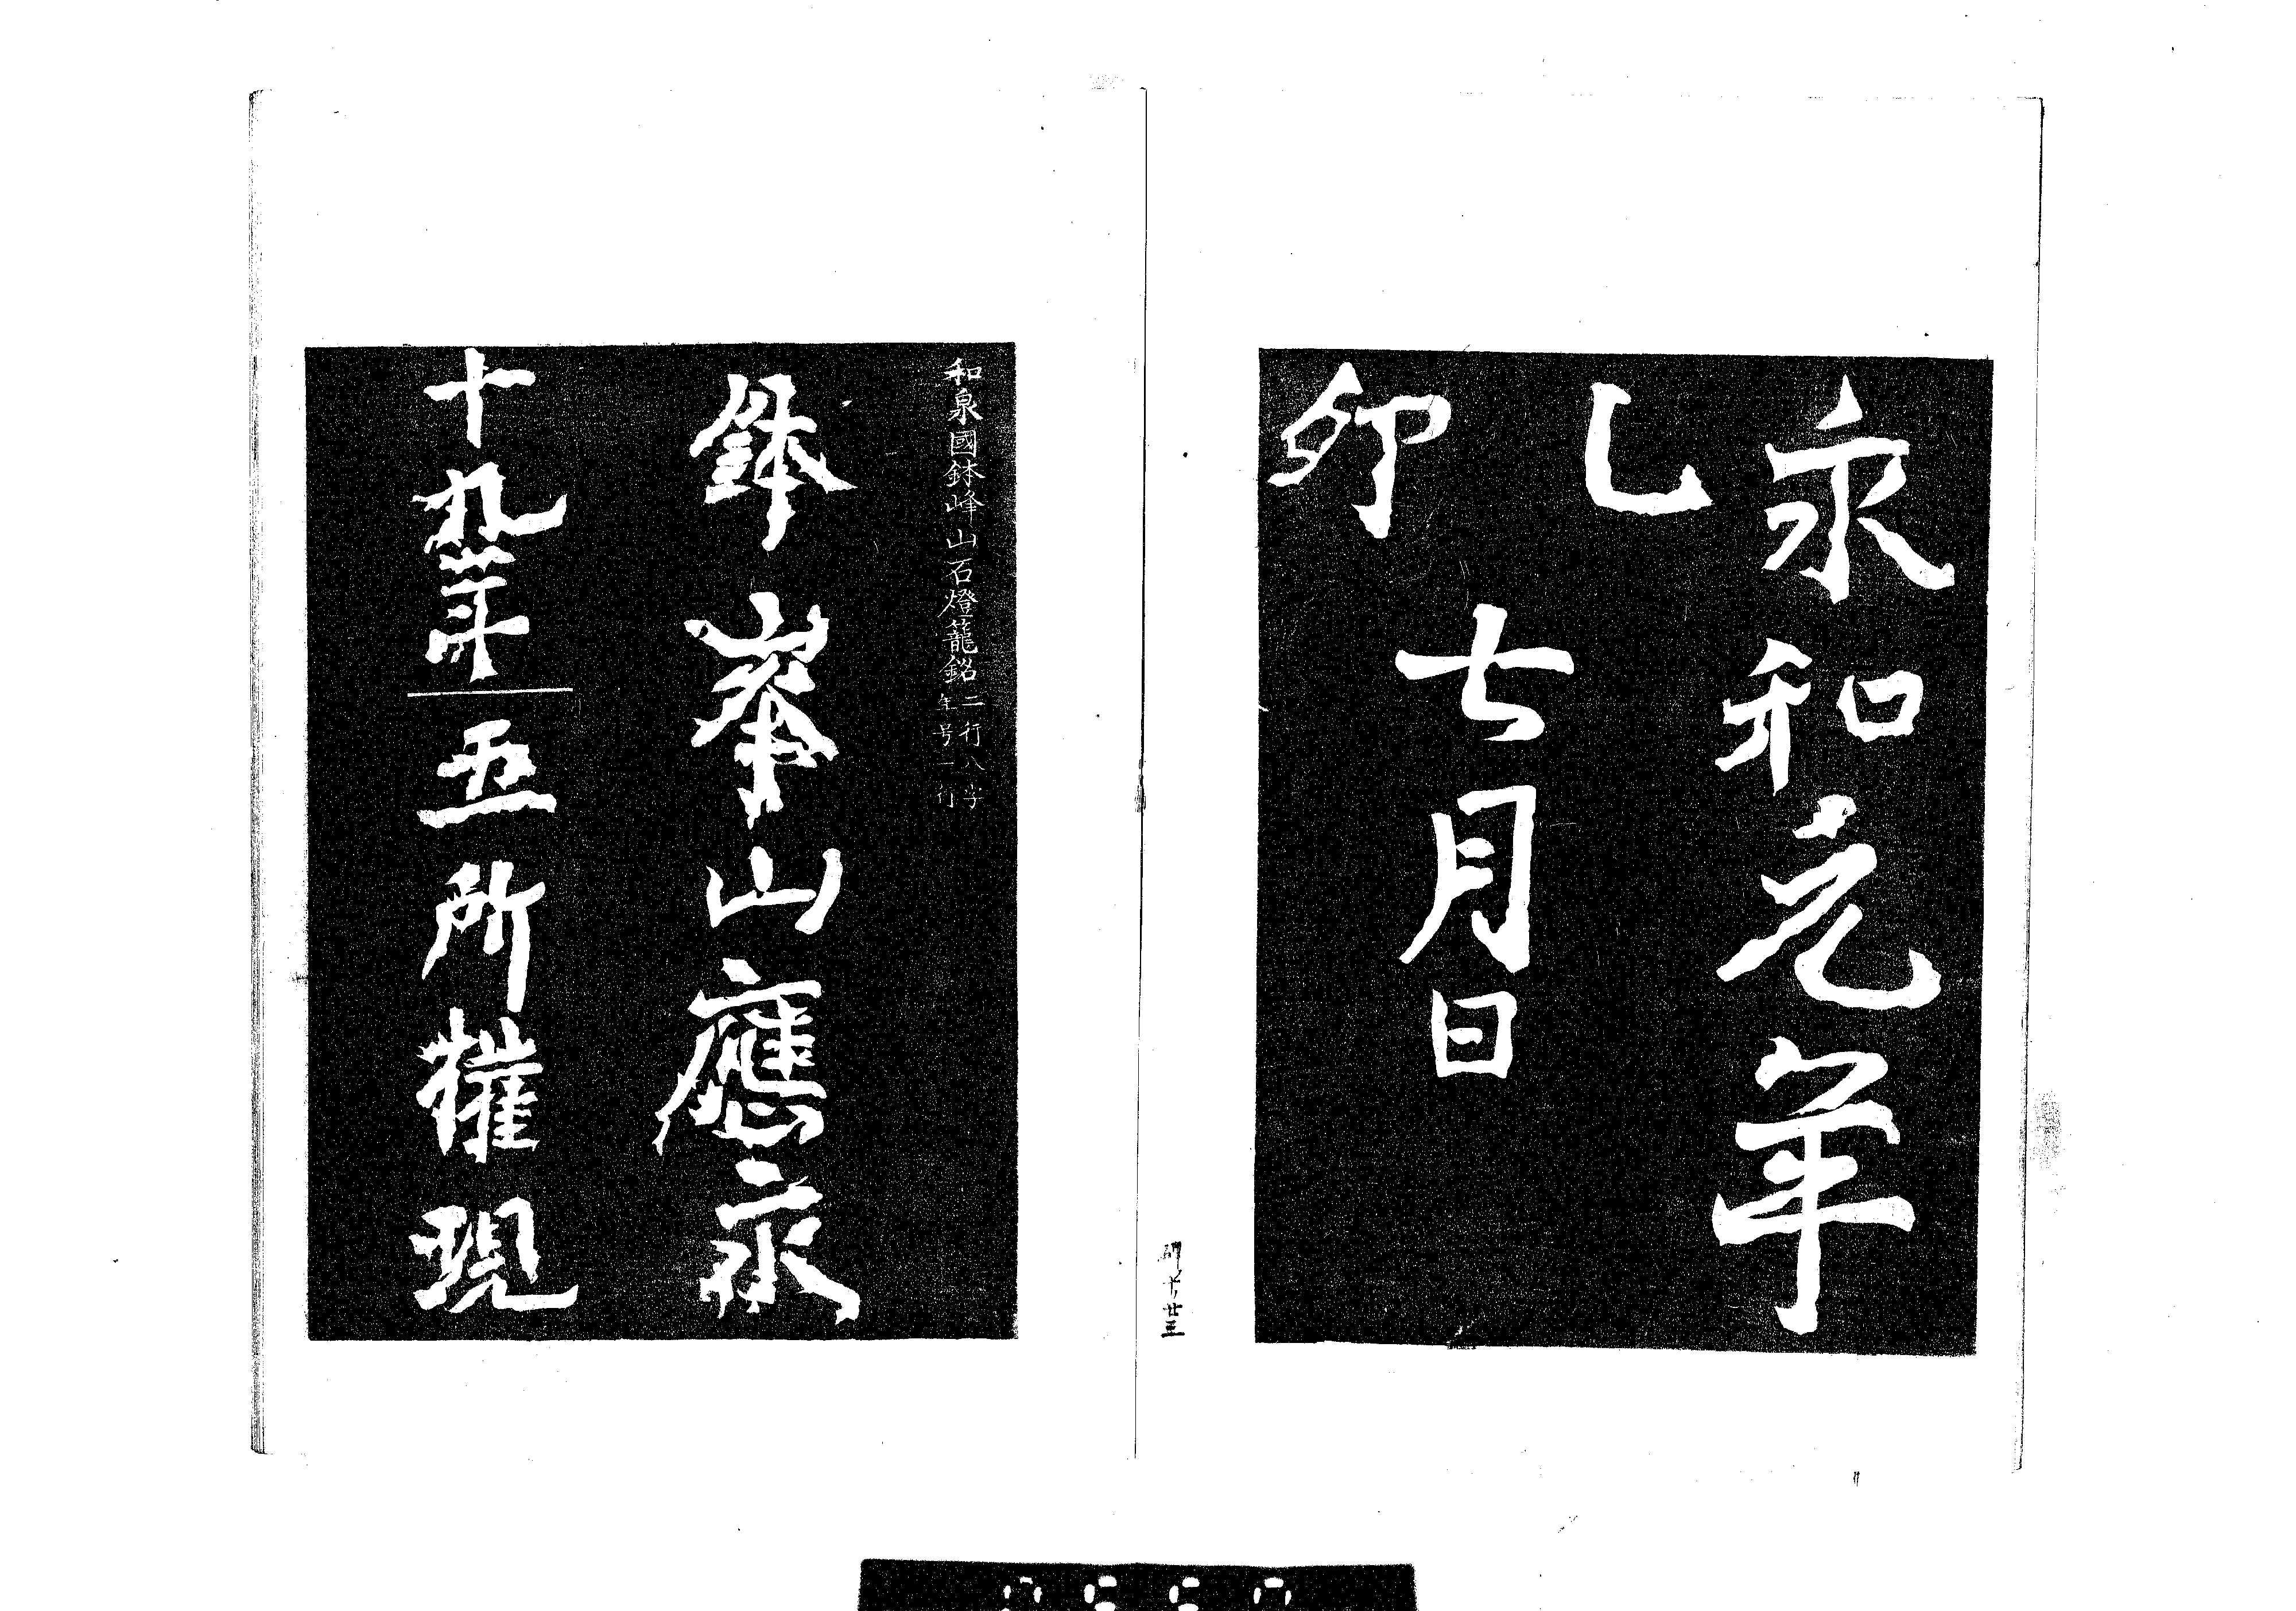 永和元年
乙
七月日
卯
和泉國鉢峰山石燈籠銘二行八字
年号一行
鉢峯山應永
十九年
五所權現